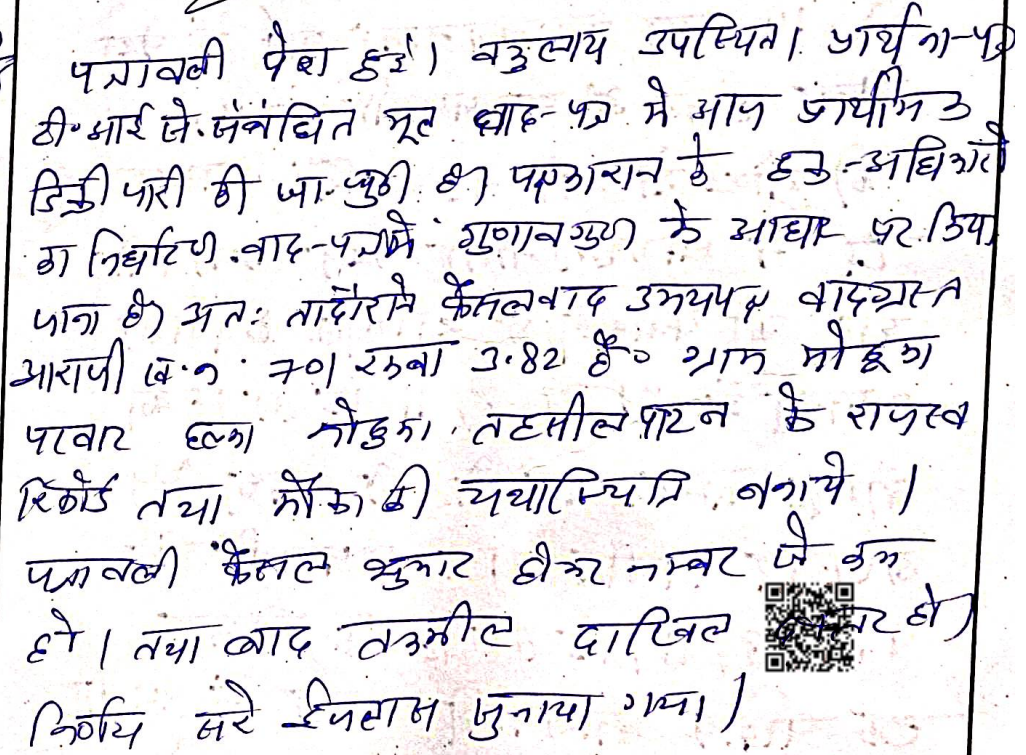 पत्रावली पेश हुई। वकुलाय उपस्थित। प्रार्थना-पत्र
टी.आई से.संबंधित मूल वाद-पत्र मे आज प्राथमिक
डिक्री पारी की जा.चुकी है। पक्षकारान के. हक-अधिकारो
का निर्धारण.वाद-पत्र मे गुणावगुण के आधार पर.किया
जाना है। अतः तादौराने फैसलवाद उभयपक्ष वादग्रस्त
आराजी ख.न. 701 रकबा 3.82 है० ग्राम मोहूका
पटवार हल्का मोहूका. तहसील पाटन के राजस्व
रिकॉर्ड तथा मौका की यथास्थिति बनाये।
पत्रावली फैसल शुमार होकर नम्बर से कम
हो। तथा बाद तकमील दाखिल दफ्तर हो।
निर्णय सरे ईजलास सुनाया गया।